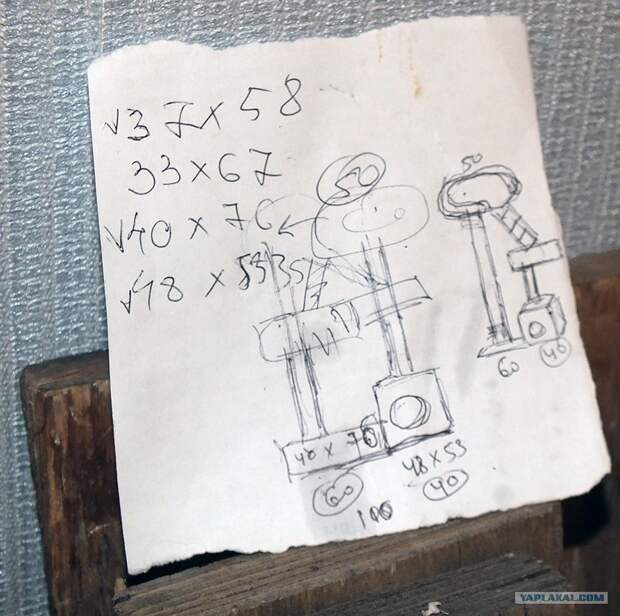 √37×58
33×67
√40×76
√48×53
50
50
40×76
48×53
60
40
100
60
40
YAPLAKAL.COM